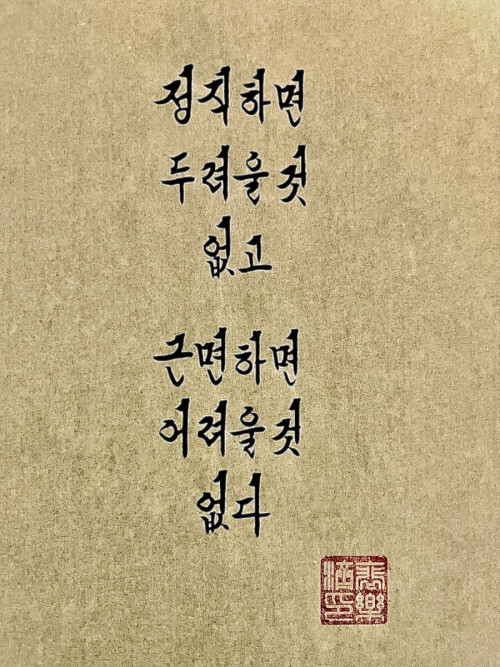 정직하면
두려울것
없고
근면하면
어려울것
없다